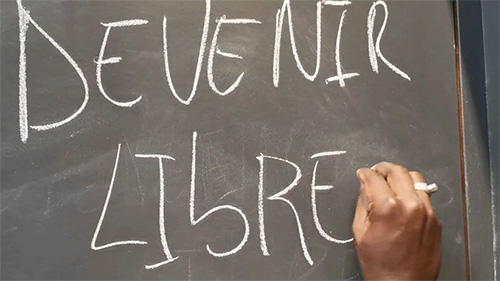 DEVENIR
LIbRE